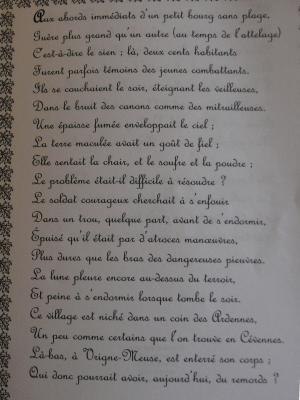 Aux abords immédiats d'un petit bourg sans plage,
Guère plus grand qu'un autre (au temps de l'attelage)
C'est-à-dire le sien ; là, deux cents habitants
Furent parfois témoins des jeunes combattants.
Ils se couchaient le soir, éteignant les veilleuses,
Dans le bruit des canons comme des mitrailleuses.
Une épaisse fumée enveloppait le ciel ;
La terre maculée avait un goût de fiel ;
Elle sentait la chair, et le soufre et la poudre ;
Le problème était-il difficile à résoudre ?
Le soldat courageux cherchait à s'enfouir
Dans un trou, quelque part, avant de s'endormir,
Épuisé qu'il était par d'atroces manœuvres,
Plus dures que les bras des dangereuses pieuvres.
La lune pleure encore au-dessus du terroir,
Et peine à s'endormir lorsque tombe le soir.
Ce village est niché dans un coin des Ardennes,
Un peu comme certains que l'on trouve en Cévennes.
Là-bas, à Vrigne-Meuse, est enterré son corps ;
Qui donc pourrait avoir, aujourd'hui, du remords ?